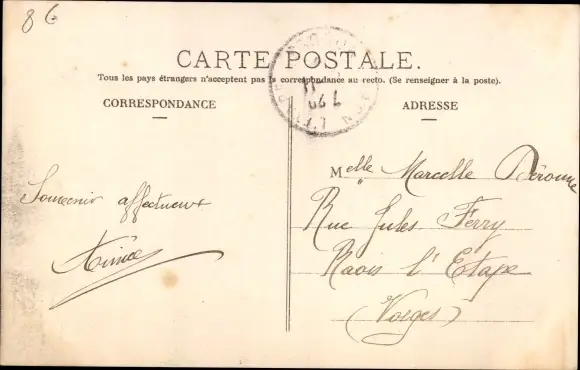 86
CARTE POSTALE.
Tous les pays étrangers n'acceptent pas la correspondance au recto. (Se renseigner à la poste).
CORRESPONDANCE
ADRESSE
Souvenir affectueux
Aimée
Melle Marcelle
Rue Jules Ferry
Raois l'Etape
(Vosges)